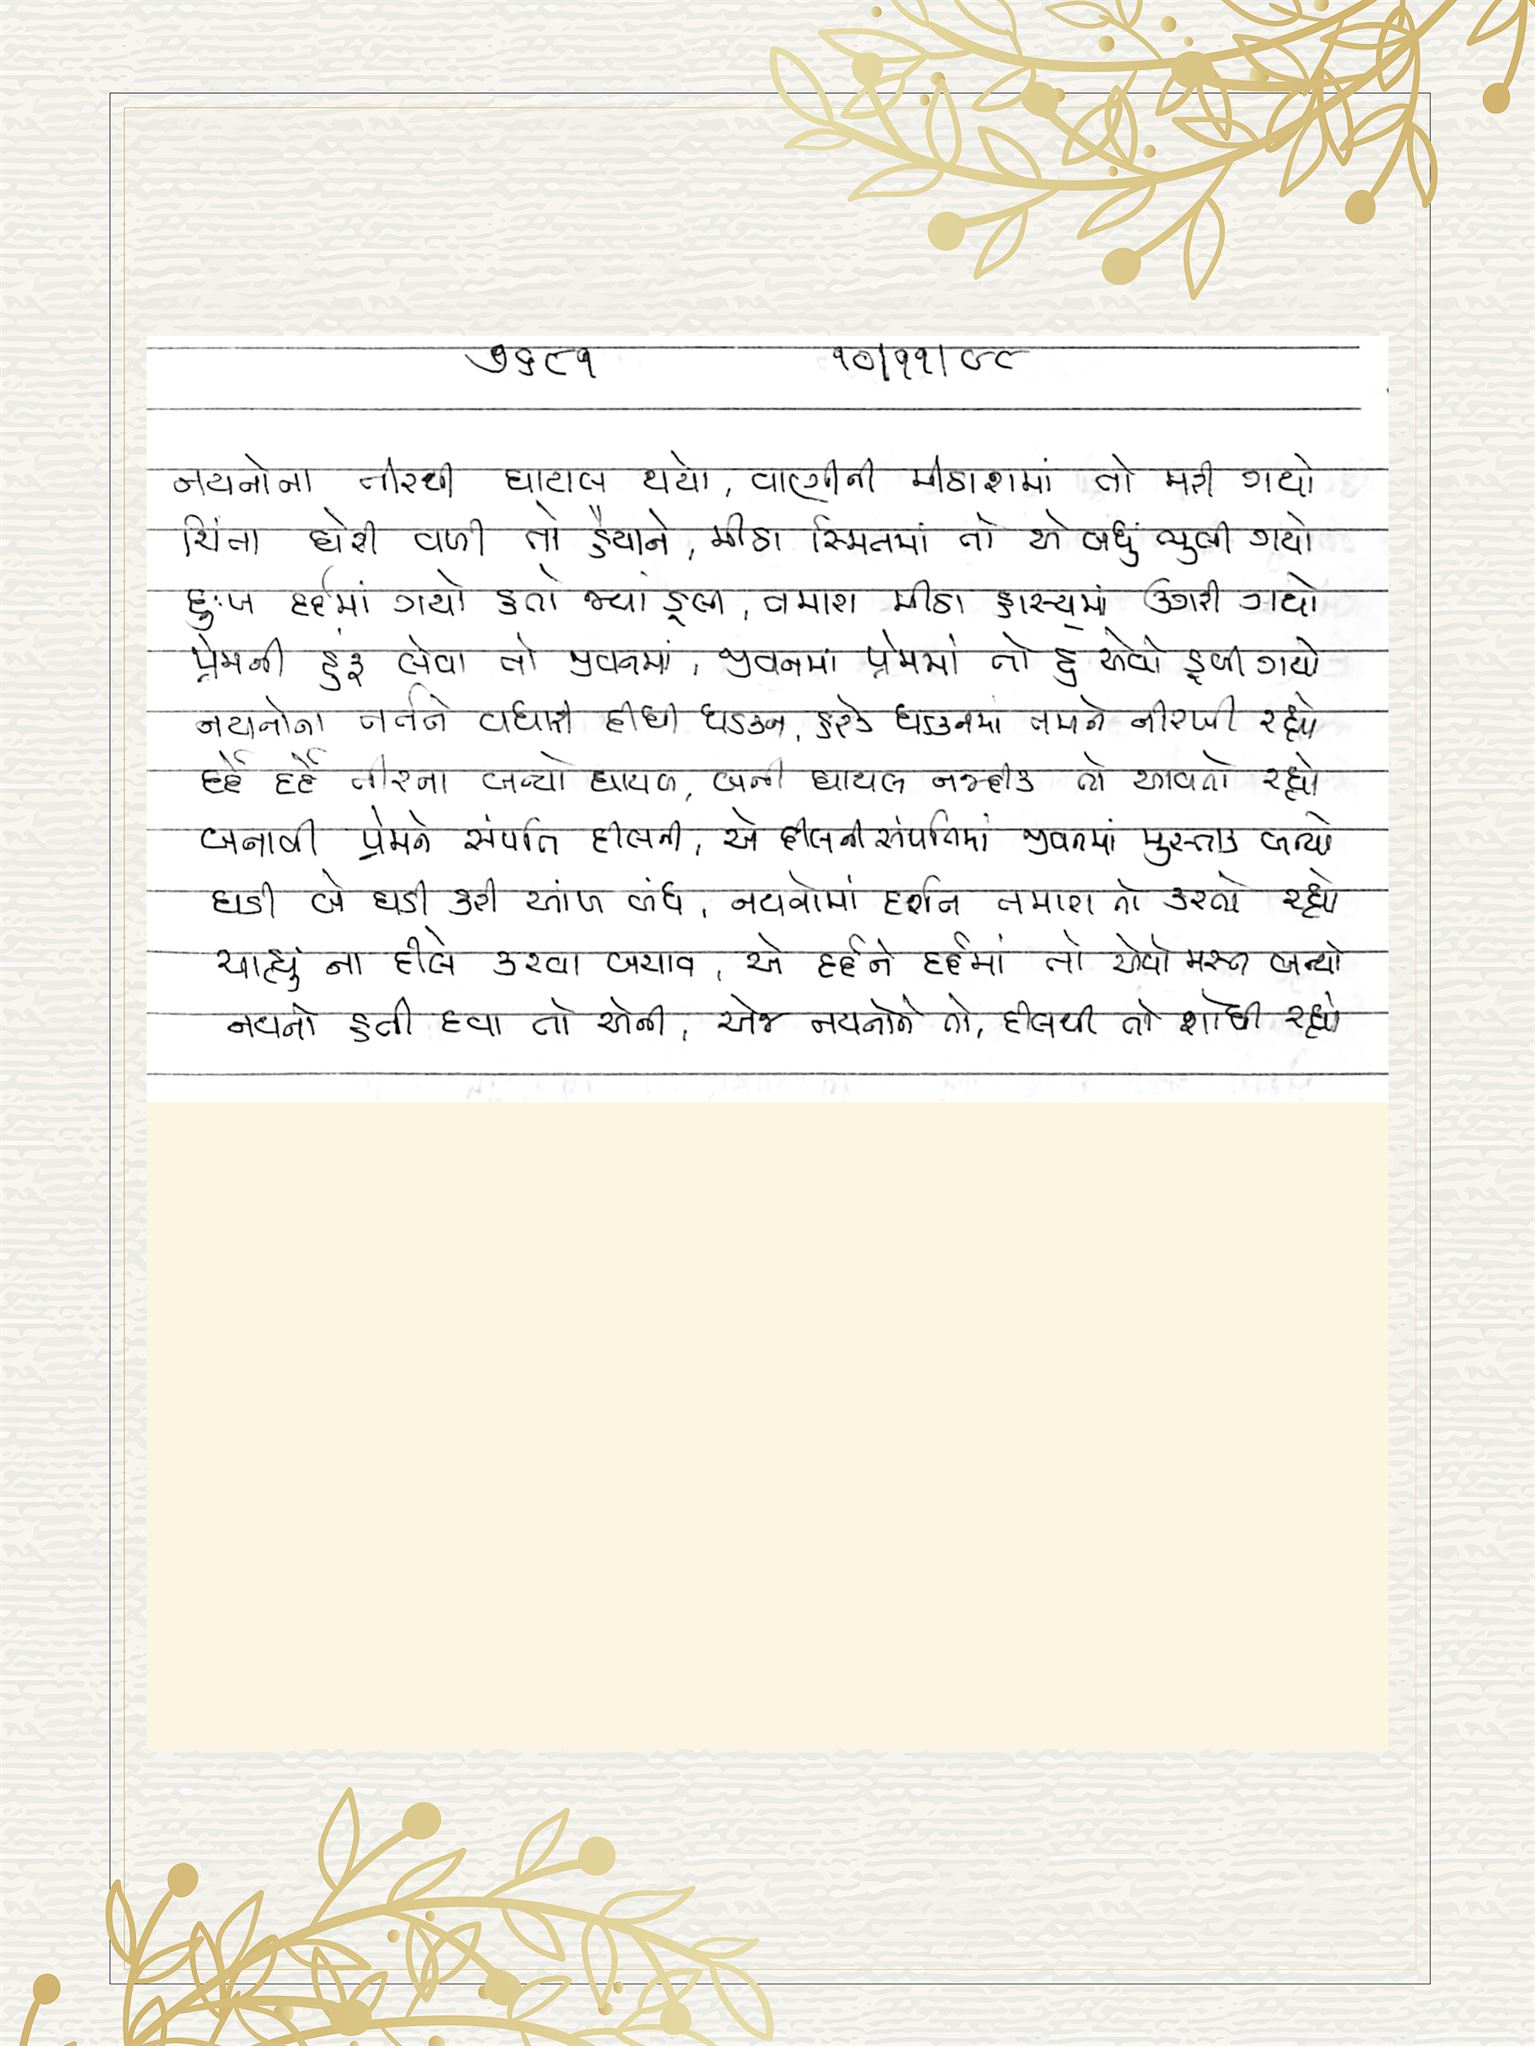 ૭૬૯૧ ૧૦/૧૧/૯૮
નયનોના તીરથી ઘાયલ થયો, વાણીની મીઠાશમાં તો મરી ગયો
ચિંતા ઘેરી વળી તો હૈયાને, મીઠા સ્મિતમાં તો એ બધું ભુલી ગયો
દુઃખ દર્દમાં ગયો હતો જ્યાં ડૂબી, તમારા મીઠા હાસ્યમાં ઉગરી ગયો
પ્રેમની હુંફ લેવા તો જીવનમાં, જીવનમાં પ્રેમમાં તો હુ એવો ડૂબી ગયો
નયનોના નર્તને વધારી દીધી ધડકન, હરેક ધડકનમાં તમને નીરખી રહ્યો
દર્દે દર્દે તીરના બન્યો ઘાયલ, બની ઘાયલ નજદીક તો આવતો રહ્યો
બનાવી પ્રેમને સંપત્તિ દીલની, એ દીલની સંપત્તિમાં જીવનમાં મુસ્તાક બન્યો
ઘડી બે ઘડી કરી આંખ બંધ, નયનોમાં દર્શન તમારા તો કરતો રહ્યો
ચાહ્યું ના દીલે કરવા બચાવ, એ દર્દને દર્દમાં તો એવો મસ્ત બન્યો
નયનો હતી દવા તો એની, એજ નયનોને તો, દીલથી તો શોધી રહ્યો